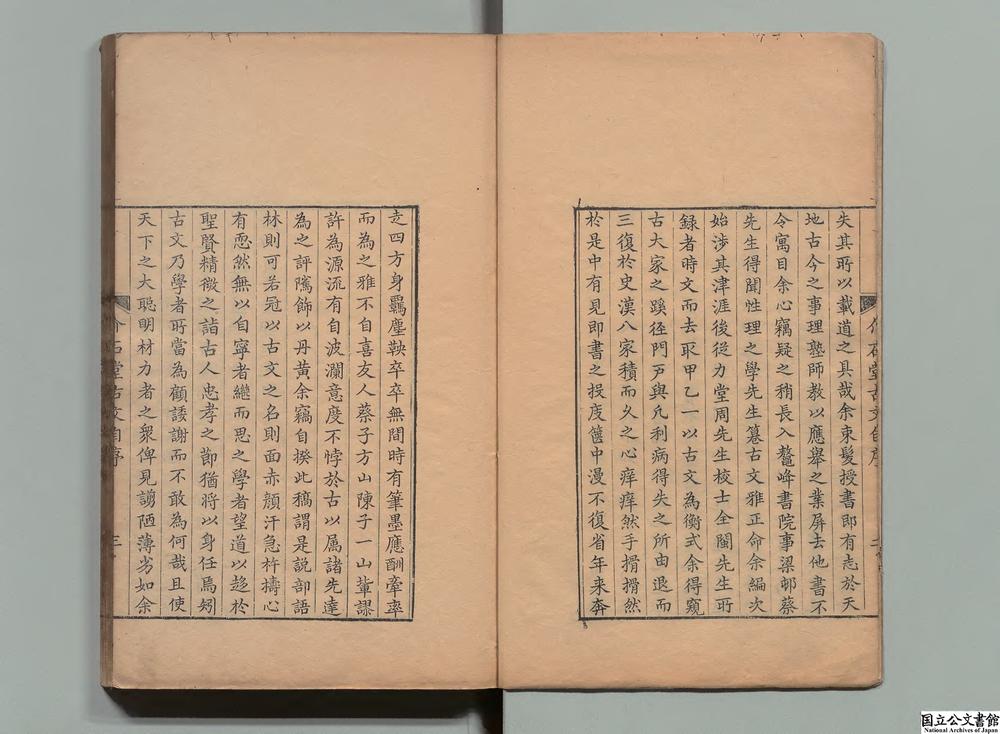 失其所以載道之具哉余束髮授書即有志於天
地古今之事理塾師教以應舉之業屏去他書不
令寓目余心竊疑之稍長入鼇峰書院事梁邨蔡
先生得聞性理之學先生篹古文雅正命余編次
始涉其津涯後從力堂周先生校士全閩先生所
録者時文而去取甲乙一以古文為衡式余得窺
古大家之蹊徑門戸與凡利病得失之所由退而
三復於史漢八家積而久之心癢癢然手搰搰然
於是中有見即書之投庋篋中漫不復省年来奔
走四方身羈塵鞅卒卒無間時有筆墨應酬率率
而為之雅不自喜友人蔡子方山陳子一山輩謬
許為源流有自波瀾意度不悖於古以屬諸先達
為之評隲飾以丹黄余竊自揆此稿謂是説部語
林則可若冠以古文之名則面赤顔汗急杵擣心
有恧然無以自寧者繼而思之學者望道以趋於
聖賢精微之詣古人忠孝之節猶將以身任焉矧
古文乃學者所當為顧諉謝而不敢為何哉且使
天下之大聰明材力者之衆俾見謭陋薄劣如余
介石堂古文自序
三
国立公文書館
National Archives of Japan